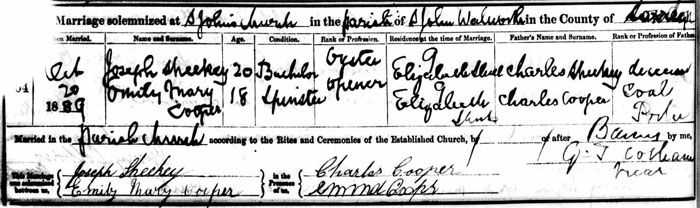 Marriage solemnized at St John's Church in the Parish of St John Walworth in the County of
Married. Name and Surname. Age. Condition. Rank or Profession. Residence at the time of Marriage. Father's Name and Surname. Rank or Profession of Father
Oct Joseph Sheekey 20 Bachelor Oyster Opener 9 Elizabeth Street Charles Sheekey deceased
20 1889 Emily Mary Cooper 18 Spinster Elizabeth Charles Cooper Coal Porter
Married in the Parish Church according to the Rites and Ceremonies of the Established Church, by or after Banns by me,
This Marriage was solemnized between us, Joseph Sheekey Emily Mary Cooper in the Presence of us, Charles Cooper Emma Cooper
G. T. Cotham
Vicar